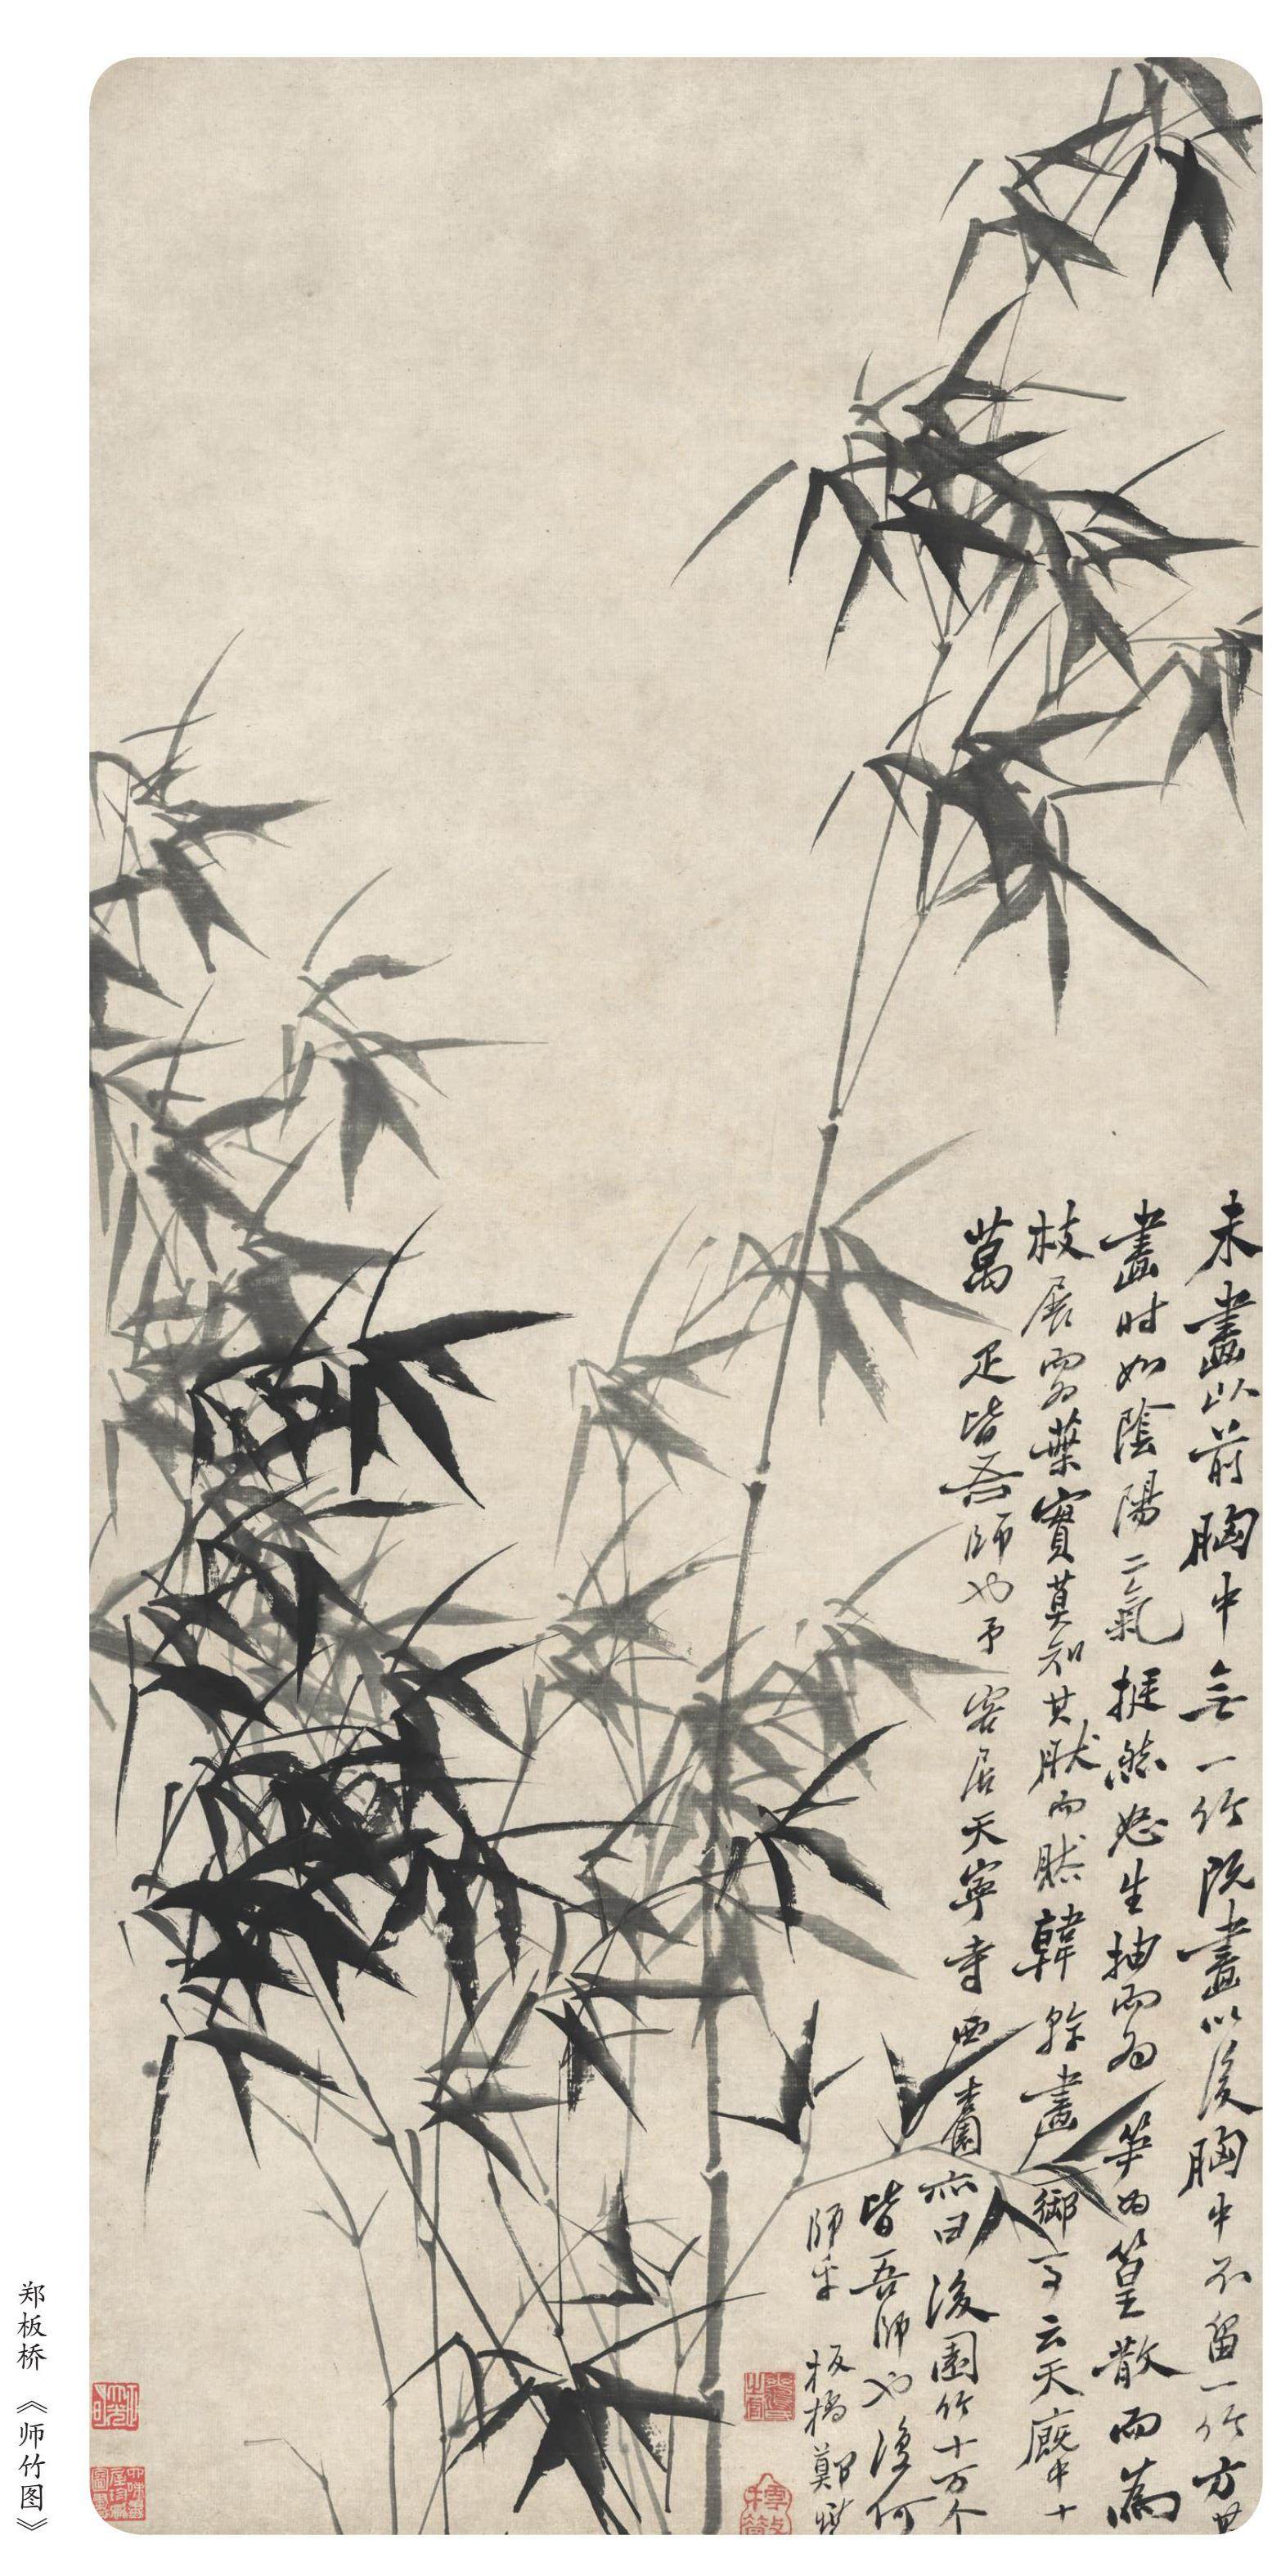 未畫以前胸中無一竹既畫以後胸中不留一竹方其
畫時如陰陽二氣挺然怒生抽而為笋為篁散而為
枝展而為葉實莫知其肰而肰韓幹畫御馬云天廐中十
萬疋皆吾師也予客居天寧寺西杏園亦曰後園竹十万个
皆吾師也復何
師乎 板橋鄭燮
郑板桥《师竹图》